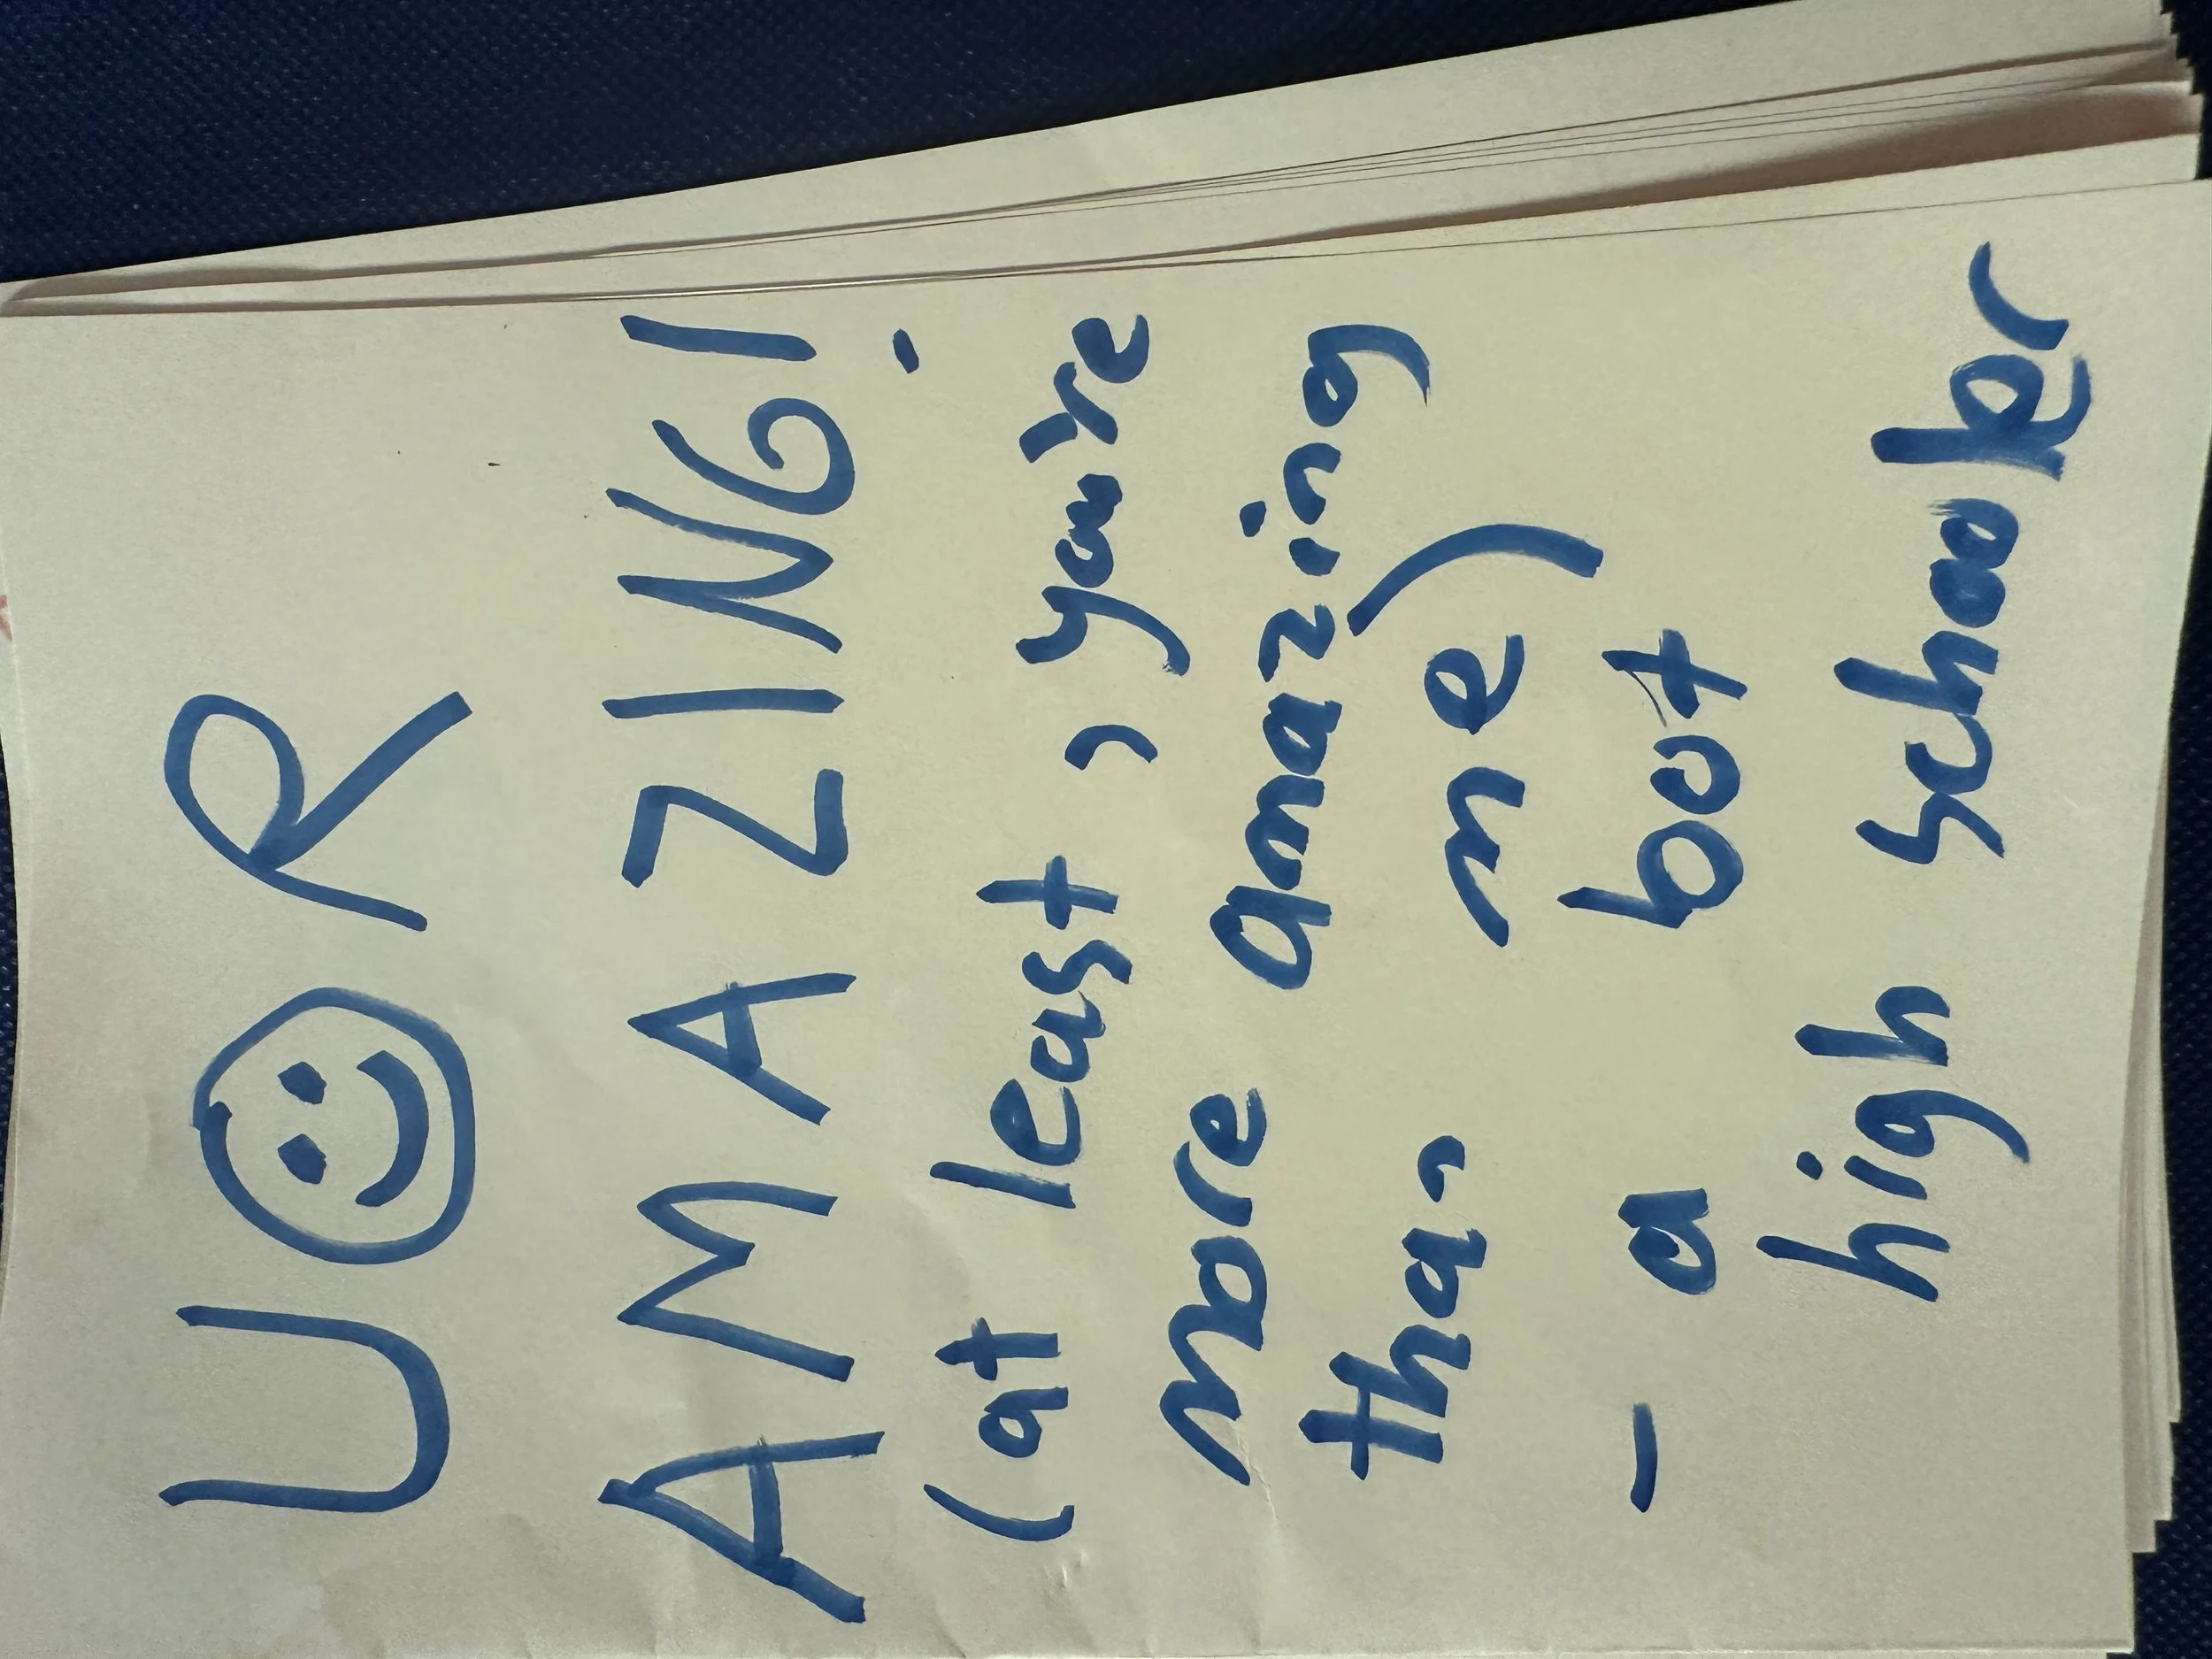 U R
AMAZING!
(at least, you're
more amazing
than me)
- a bot
high schooler